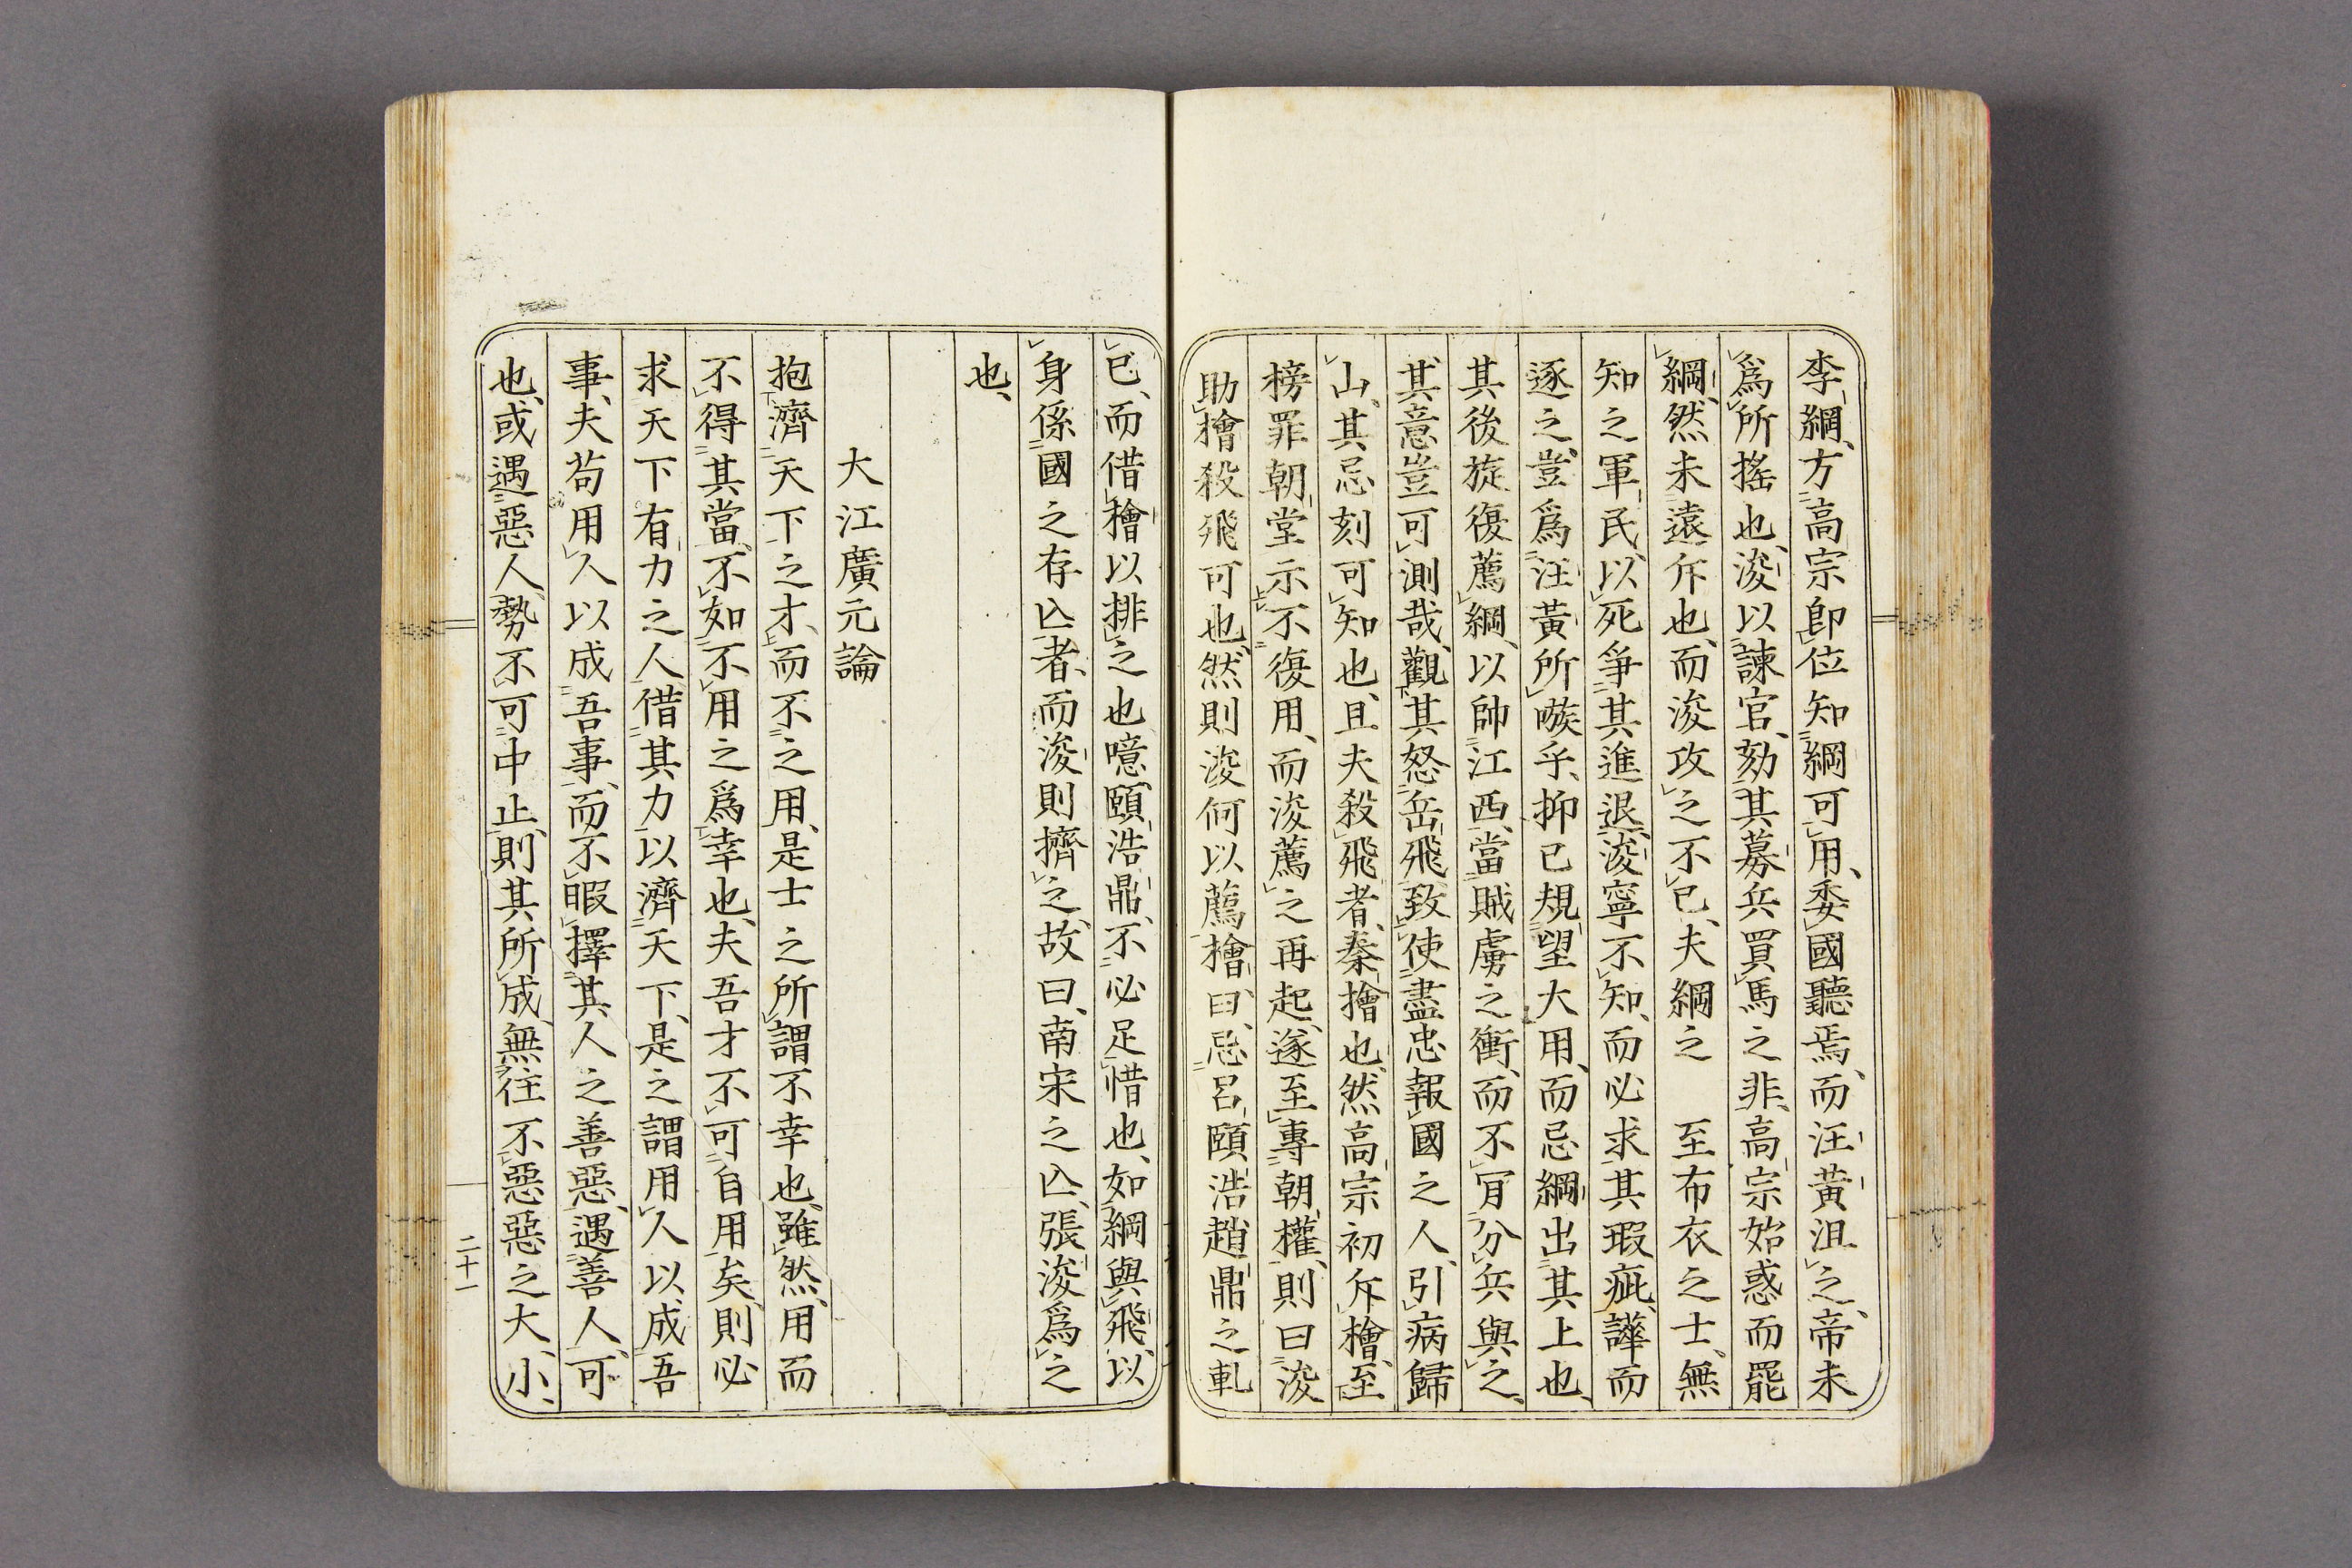 李綱、方高宗卽位知綱可用、委國聽焉、而汪黃沮之、帝未
爲所搖也、浚以諫官、劾其募兵買馬之非、高宗始惑而罷
綱、然未遠斥也、而浚攻之不已、夫綱之 至布衣之士、無
知之軍民、以死爭其進退、浚寧不知、而必求其瑕疵、譁而
逐之、豈爲汪黃所嗾乎、抑己規望大用、而忌綱出其上也、
其後旋復薦綱、以帥江西、當賊虜之衝、而不肎分兵與之、
其意豈可測哉、觀其怒岳飛、致使盡忠報國之人、引病歸
山、其忌刻可知也、且夫殺飛者、秦檜也、然高宗初斥檜、至
榜罪朝堂示不復用、而浚薦之再起、遂至專朝權、則曰浚
助檜殺飛可也、然則浚何以薦檜、曰、忌呂頤浩趙鼎之軋
已、而借檜以排之也、噫頤浩鼎、不必足惜也、如綱與飛、以
身係國之存亾者、而浚則擠之、故曰、南宋之亾、張浚爲之
也、
大江廣元論
抱濟天下之才、而不之用、是士之所謂不幸也、雖然、用而
不得其當、不如不用之爲幸也、夫吾才不可自用矣、則必
求天下有力之人、借其力以濟天下、是之謂用人以成吾
事、夫苟用人以成吾事、而不暇擇其人之善惡、遇善人、可
也、或遇惡人、勢不可中止、則其所成、無往不惡、惡之大小、
二十一